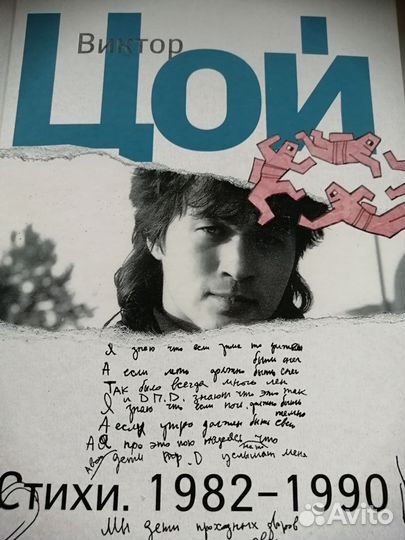 Виктор
Цой
Я знаю что если зима то должен
быть снег
А если лето должно быть
Так было всегда много лет
и Д.П.D. знают что это так
Я знаю что если ночь, должно быть
темно
А если утро должен быть свет
А Я про это пою надеясь что
дети D услышат меня
Стихи. 1982–1990
Мы дети проходных дворов
Avito